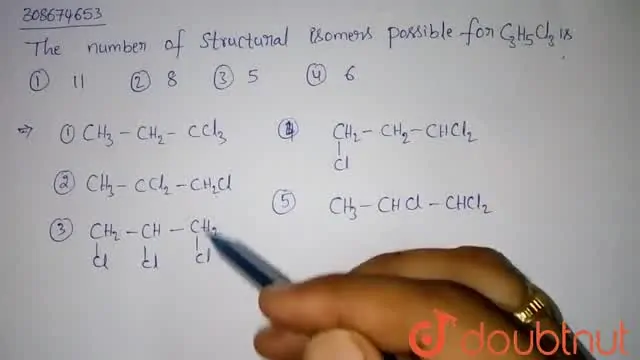 308674653
The number of structural isomers possible for C3H5Cl3 is
① 11 ② 8 ③ 5 ④ 6
⇒ ① CH3 - CH2 - CCl3
② CH3 - CCl2 - CH2Cl
③ CH2 - CH - CH2
Cl Cl Cl
④ CH2 - CH2 - CHCl2
Cl
⑤ CH3 - CHCl - CHCl2
doubtnut